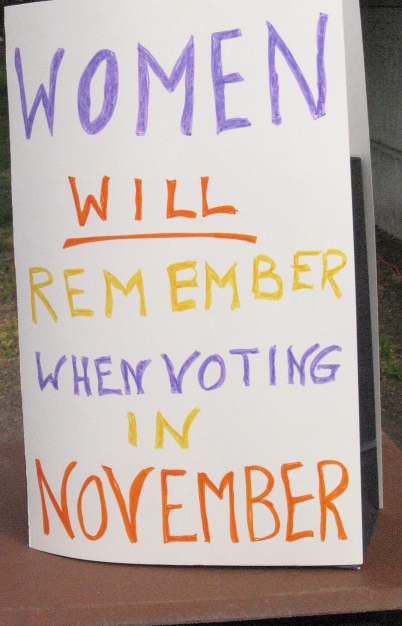 WOMEN
WILL
REMEMBER
WHEN VOTING
IN
NOVEMBER